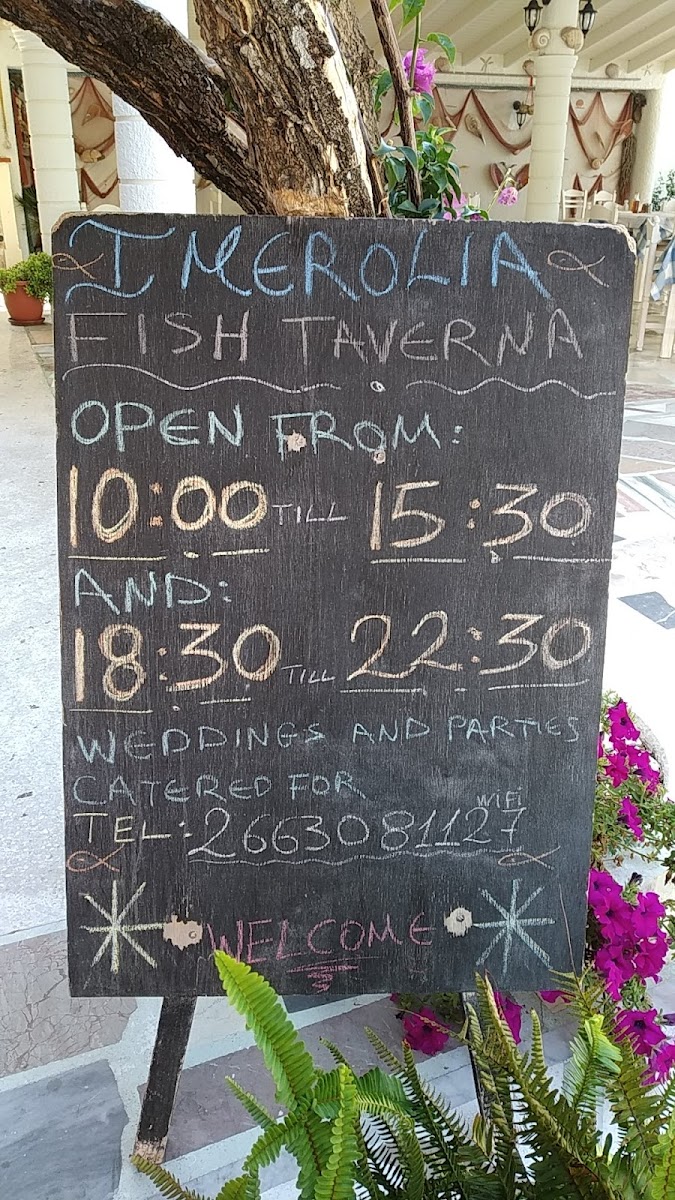 IMEROLIA
FISH TAVERNA
OPEN FROM:
10:00 TILL 15:30
AND:
18:30 TILL 22:30
WEDDINGS AND PARTIES
CATERED FOR
WIFI
TEL: 2663081127
WELCOME